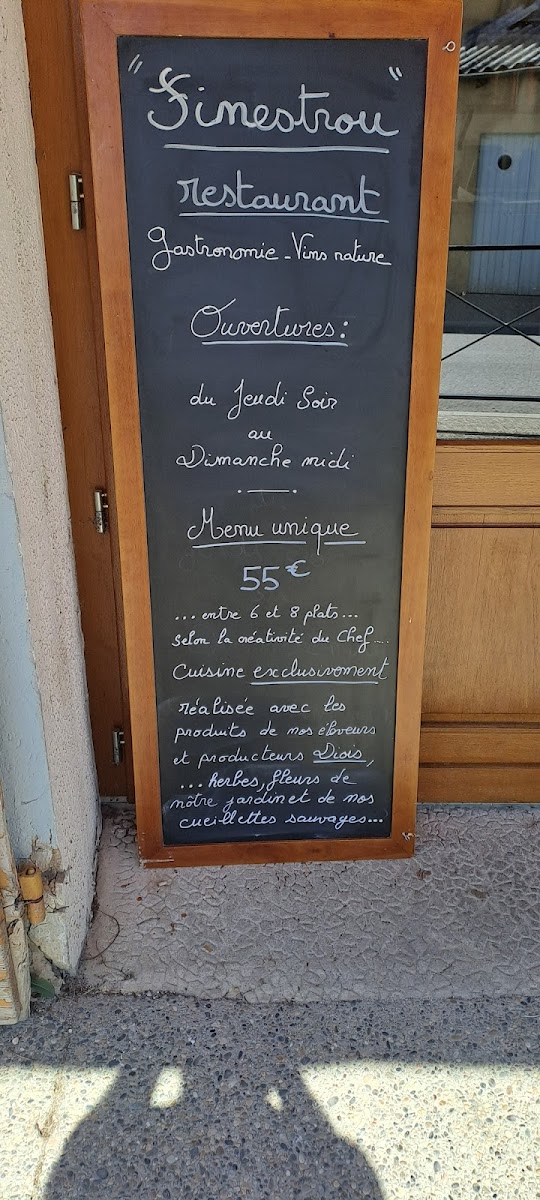 "Finestrou"
restaurant
Gastronomie - Vins nature
Ouvertures :
du Jeudi Soir
au
Dimanche midi
Menu unique
55 €
... entre 6 et 8 plats...
Selon la créativité du Chef....
Cuisine exclusivement
réalisée avec les
produits de nos éleveurs
et producteurs Diois,
... herbes, fleurs de
nôtre jardin et de nos
cueillettes sauvages...